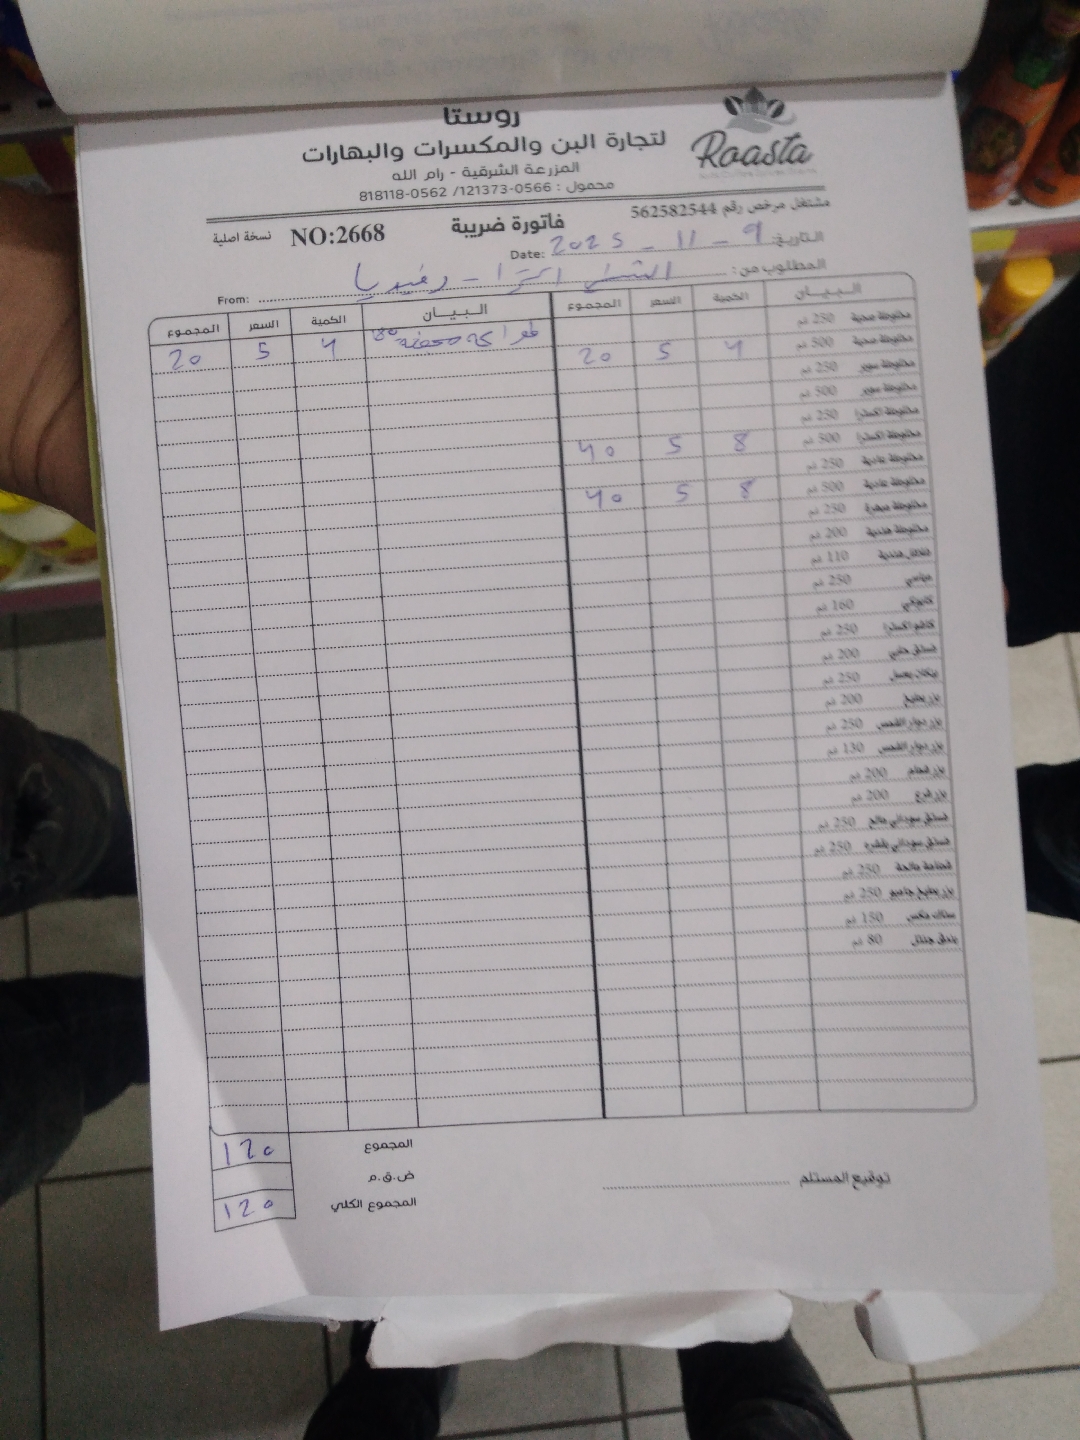 روستا
Roasta
لتجارة البن والمكسرات والبهارات
المزرعة الشرقية - رام الله
محمول : 0566-121373/ 0562-818118
مشتغل مرخص رقم 562582544
فاتورة ضريبة
NO:2668
نسخة اصلية
التاريخ: 9 - 11 - 2025 Date:
المطلوب من: الشني اكسترا - رفيديا From:
البيـان الكمية السعر المجموع البيـان الكمية السعر المجموع
مخلوطة صحية 250 غم
مخلوطة صحية 500 غم 4 5 20 فواكه مجففة 80 4 5 20
مخلوطة سوبر 250 غم
مخلوطة سوبر 500 غم
مخلوطة اكسترا 250 غم
مخلوطة اكسترا 500 غم 8 5 40
مخلوطة عادية 250 غم
مخلوطة عادية 500 غم 8 5 40
مخلوطة مبهرة 250 غم
مخلوطة هندية 200 غم
فلافل هندية 110 غم
250 غم
160 غم
كاشو اكسترا 250 غم
فستق حلبي 200 غم
بيكان بعسل 250 غم
بزر بطيخ 200 غم
بزر دوار الشمس 250 غم
بزر دوار الشمس 130 غم
بزر شمام 200 غم
بزر قرع 200 غم
فستق سوداني مالح 250 غم
فستق سوداني بقشره 250 غم
قضامة مالحة 250 غم
بزر بطيخ جامبو 250 غم
سناك مكس 150 غم
80 غم
المجموع 120
ض.ق.م
المجموع الكلي 120
توقيع المستلم